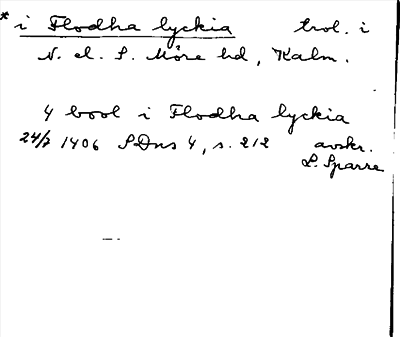 * i Flodha lyckia trol. i
N. el. S. Möre hd, Kalm.
4 bool i Flodha lyckia
24/2 1406 SDns 4, s. 212 avskr.
L. Sparre